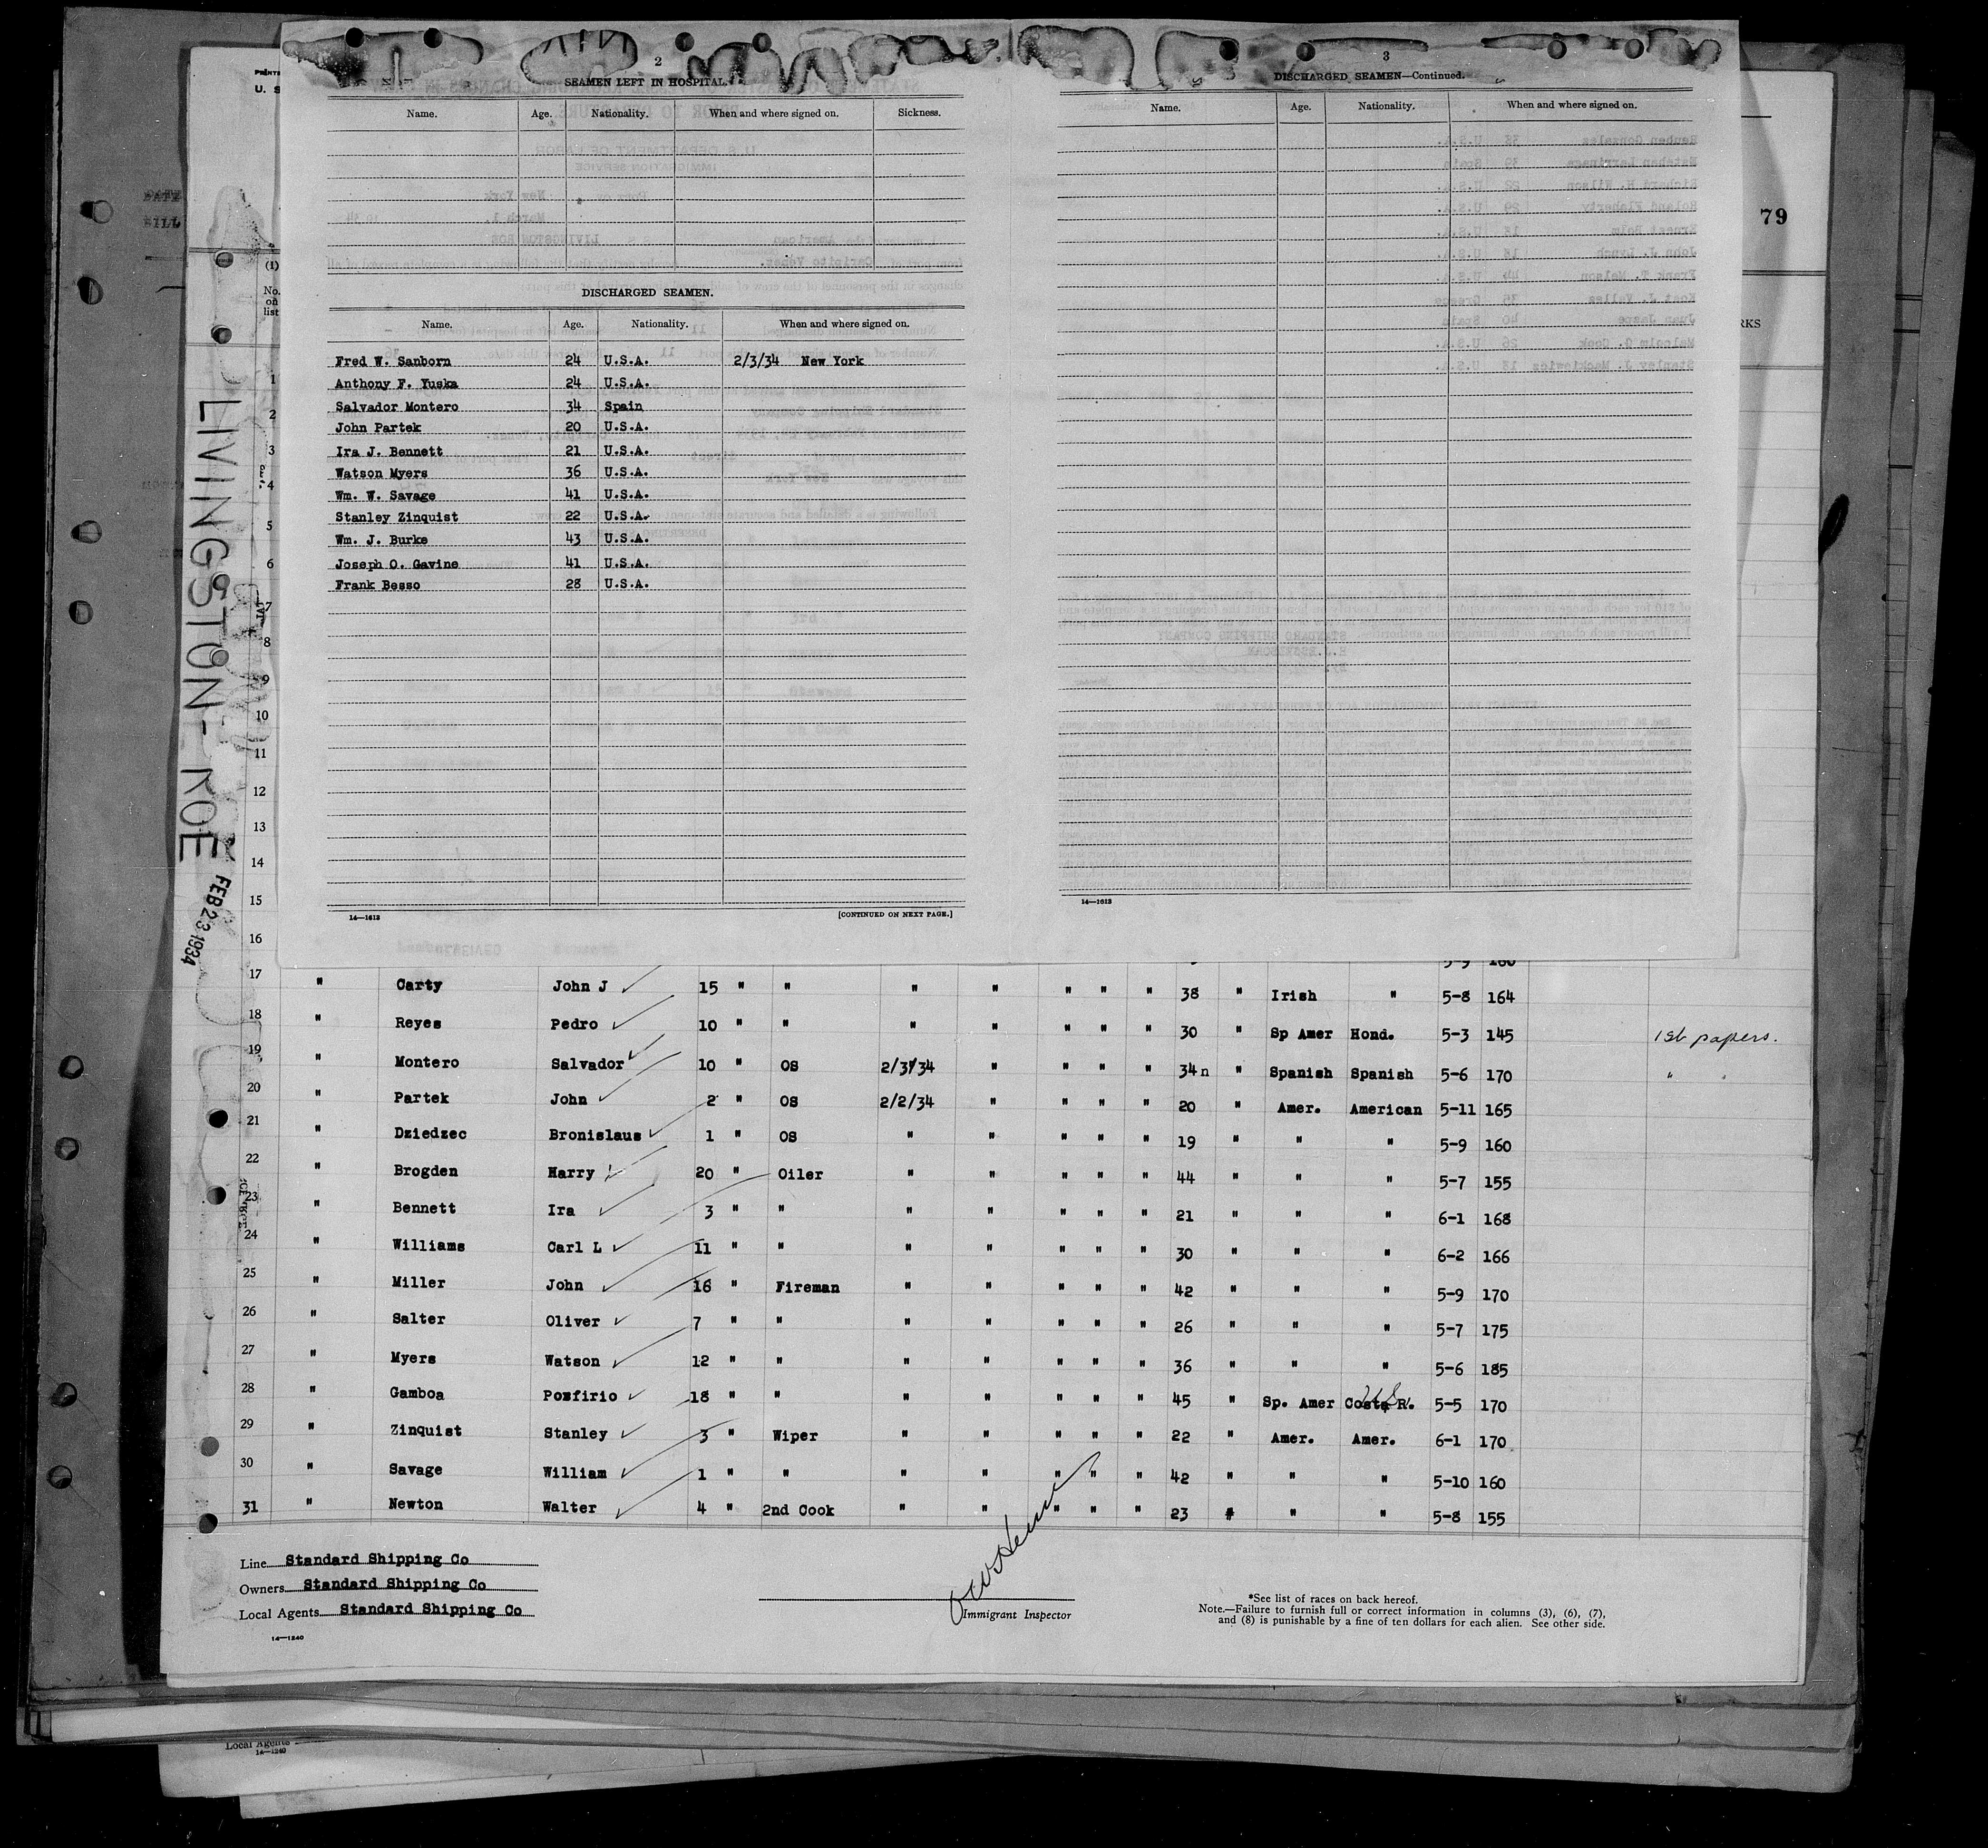 2
SEAMEN LEFT IN HOSPITAL.
Name. Age. Nationality. When and where signed on. Sickness.
DISCHARGED SEAMEN.
Name. Age. Nationality. When and where signed on.
Fred W. Sanborn 24 U.S.A. 2/3/34 New York
Anthony F. Yuska 24 U.S.A.
Salvador Montero 34 Spain
John Partek 20 U.S.A.
Ira J. Bennett 21 U.S.A.
Watson Myers 36 U.S.A.
Wm. W. Savage 41 U.S.A.
Stanley Zinquist 22 U.S.A.
Wm. J. Burke 43 U.S.A.
Joseph O. Gavine 41 U.S.A.
Frank Besso 28 U.S.A.
14—1613
[CONTINUED ON NEXT PAGE.]
3
DISCHARGED SEAMEN—Continued.
Name. Age. Nationality. When and where signed on.
14—1613
79
RKS
U. S
(1)
No.
on
list
1
2
3
4
5
6
7
8
9
10
11
12
13
14
15
16
LIVINGSTON-ROE
FEB 23 1934
5-9 160
17 " Carty John J 15 " " " " " " " 38 " Irish " 5-8 164
18 " Reyes Pedro 10 " " " " " " " 30 " Sp Amer Hond. 5-3 145 1st papers.
19 " Montero Salvador 10 " OS 2/3/34 " " " " 34n " Spanish Spanish 5-6 170 "
20 " Partek John 2 " OS 2/2/34 " " " " 20 " Amer. American 5-11 165
21 " Dziedzec Bronislaus 1 " OS " " " " " 19 " " " 5-9 160
22 " Brogden Harry 20 " Oiler " " " " " 44 " " " 5-7 155
23 " Bennett Ira 3 " " " " " " " 21 " " " 6-1 168
24 " Williams Carl L 11 " " " " " " " 30 " " " 6-2 166
25 " Miller John 16 " Fireman " " " " " 42 " " " 5-9 170
26 " Salter Oliver 7 " " " " " " " 26 " " " 5-7 175
27 " Myers Watson 12 " " " " " " " 36 " " " 5-6 185
28 " Gamboa Posfirio 18 " " " " " " " 45 " Sp. Amer Costa R. 5-5 170
29 " Zinquist Stanley 3 " Wiper " " " " " 22 " Amer. Amer. 6-1 170
30 " Savage William 1 " " " " " " " 42 " " " 5-10 160
31 " Newton Walter 4 " 2nd Cook " " " " " 23 " " " 5-8 155
Line Standard Shipping Co
Owners Standard Shipping Co
Local Agents Standard Shipping Co
14—1240
Immigrant Inspector
*See list of races on back hereof.
Note.—Failure to furnish full or correct information in columns (3), (6), (7),
and (8) is punishable by a fine of ten dollars for each alien. See other side.
Local Agents
14—1240